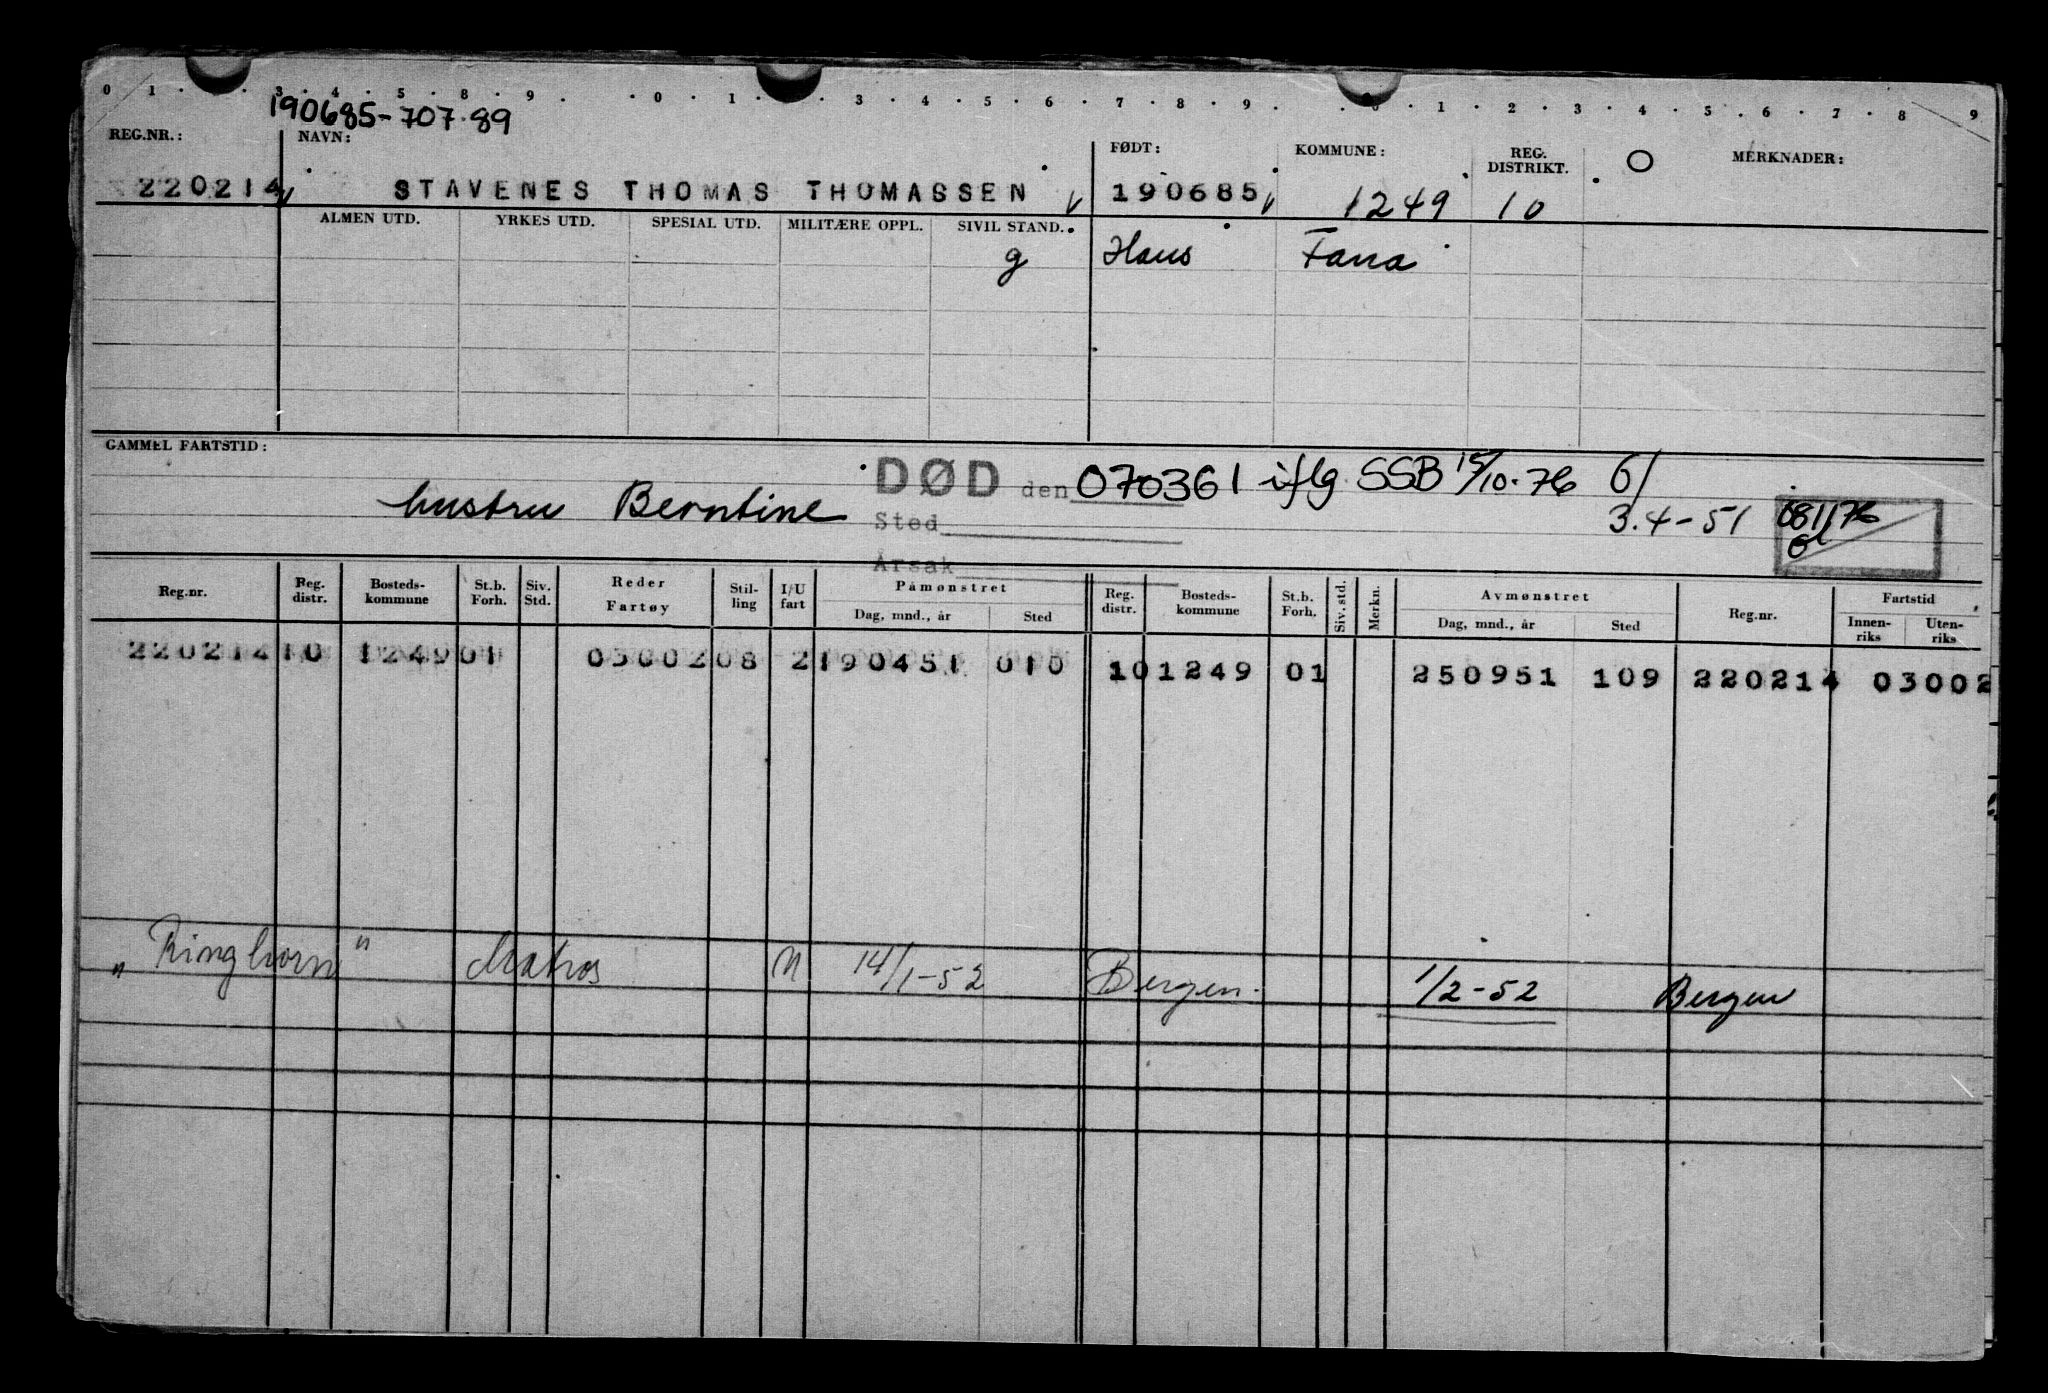 0 1 . . 3 . 4 . 5 . 8 . 9 . . 0 . 1 . . 3 . 4 . 5 . 6 . 7 . 8 . 9 . . 0 . 1 . 2 . 3 . 4 . 5 . 6 . 7 . 8 9
190685-707.89
REG.NR.: NAVN: FØDT: KOMMUNE: REG. DISTRIKT. O MERKNADER:
220214 STAVENES THOMAS THOMASSEN 190685 1249 10
ALMEN UTD. YRKES UTD. SPESIAL UTD. MILITÆRE OPPL. SIVIL STAND.
g Haus Fana
GAMMEL FARTSTID:
DØD den 070361 iflg. SSB 15/10-76 6/
hustru Berntine
Sted 3.4-51 081176
Årsak
Reg.nr. Reg. distr. Bosteds-kommune St.b. Forh. Siv. Std. Reder Fartøy Stil-ling I/U fart Påmønstret Dag, mnd., år Sted Reg. distr. Bosteds-kommune St.b. Forh. Siv. std. Merkn. Avmønstret Dag, mnd., år Sted Reg.nr. Fartstid Innen-riks Uten-riks
220214 10 1249 01 03002 08 2 190451 010 10 1249 01 250951 109 220214 03002
"Ringhorn" Matros N 14/1-52 Bergen. 1/2-52 Bergen